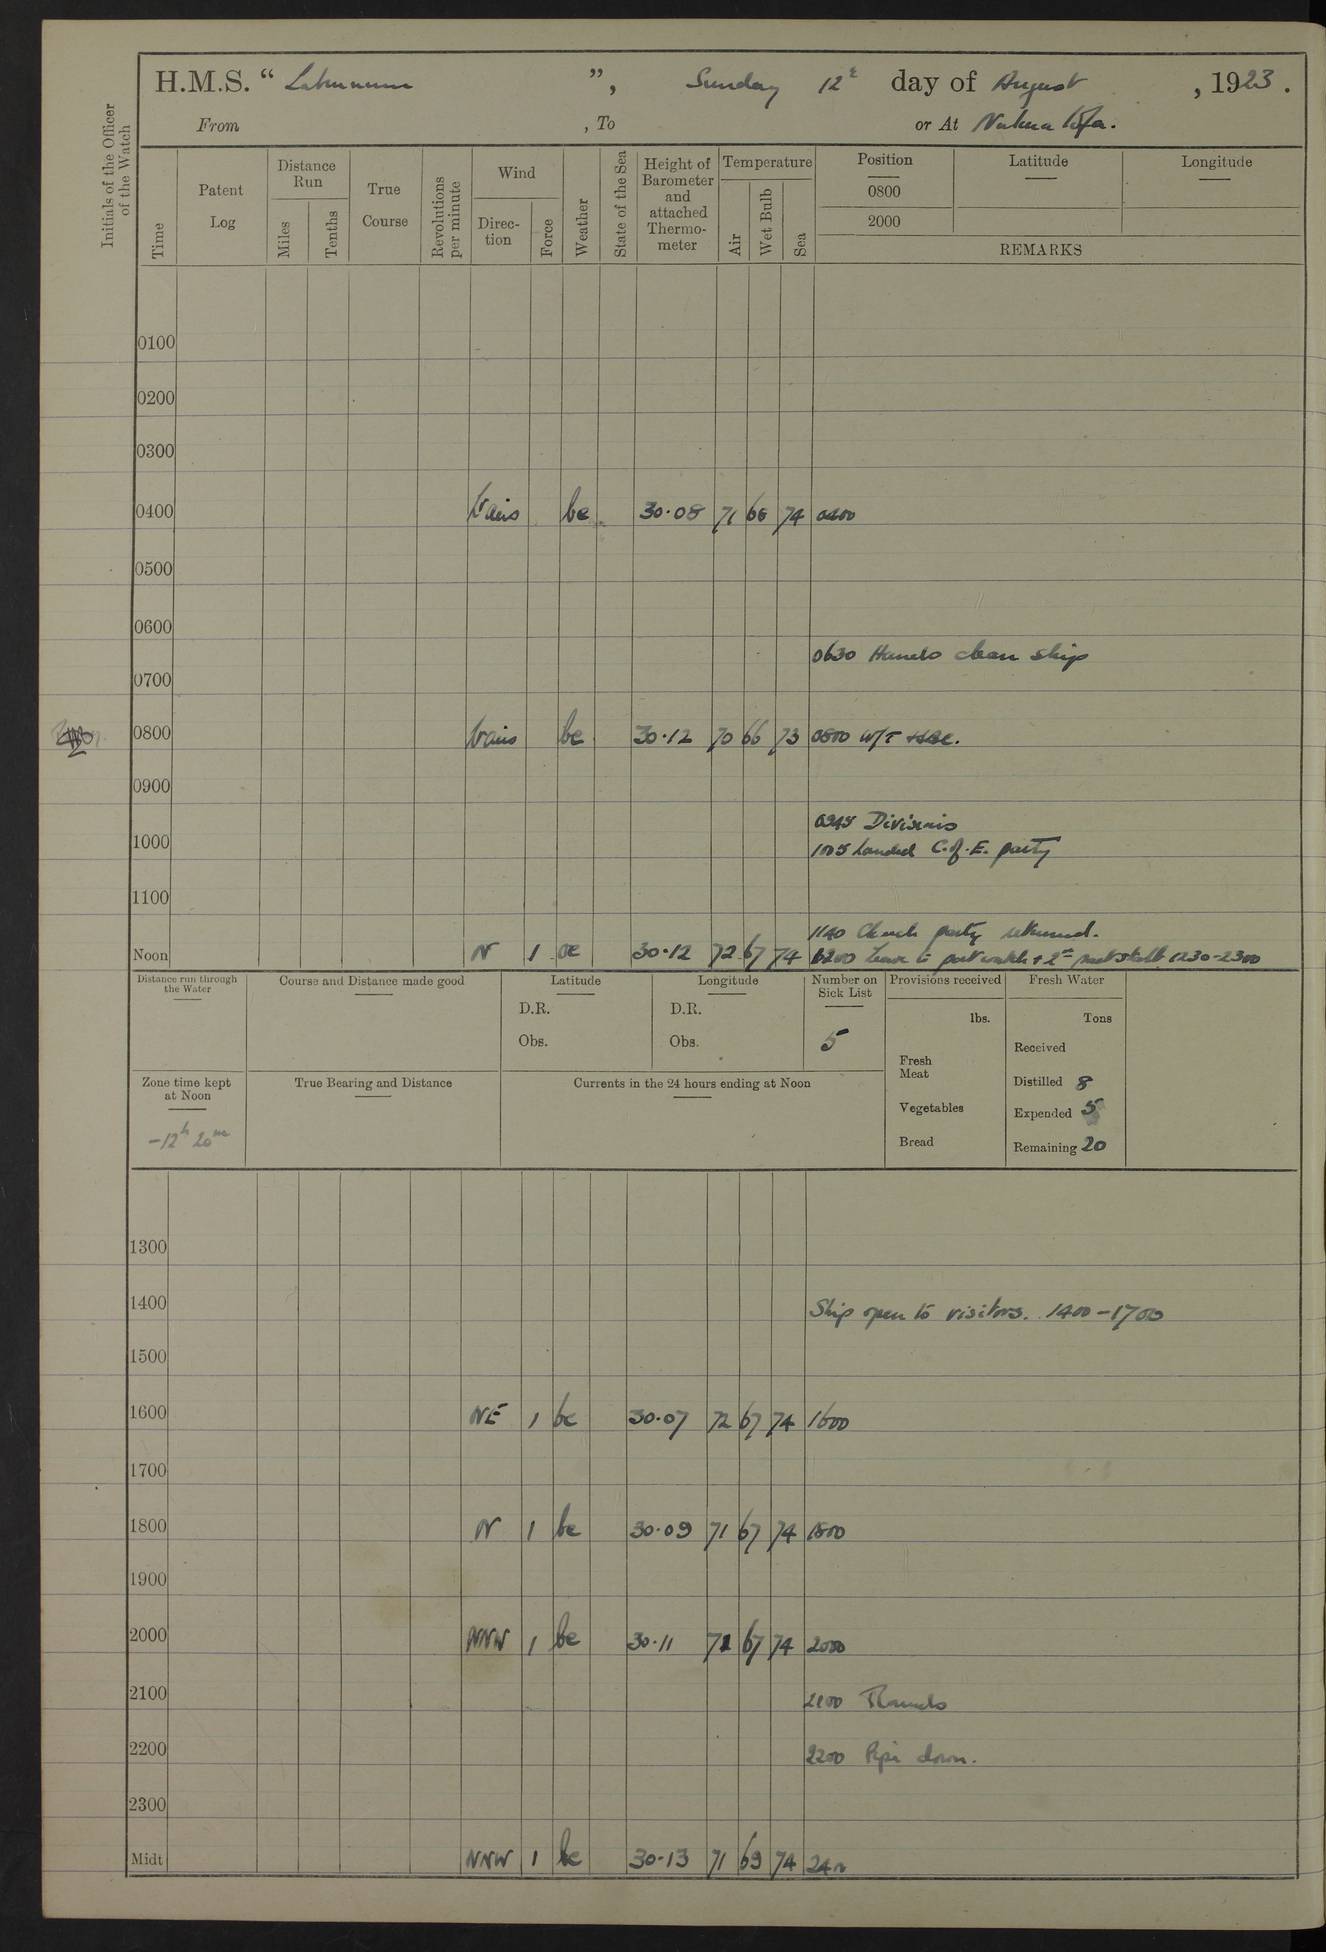 H.M.S. “ Laburnum ”, Sunday 12th day of August , 1923.
From , To or At Nukualofa.
Initials of the Officer
of the Watch
Time
Patent
Log
Distance
Run
Miles
Tenths
True
Course
Revolutions
per minute
Wind
Direc-
tion
Force
Weather
State of the Sea
Height of
Barometer
and
attached
Thermo-
meter
Temperature
Air
Wet Bulb
Sea
Position Latitude Longitude
0800
2000
REMARKS
0100
0200
0300
0400 Vairs bc 30.08 71 68 74 0400
0500
0600
0630 Hands clean ship
0700
0800 Vairs bc 30.12 70 66 73 0800 W/T
0900
0945 Divisions
1000 1005 Landed C.of.E. party
1100
1140 Church party returned.
Noon N 1 bc 30.12 72 67 74 1200 Leave to part watch + 1230-2300
Distance run through
the Water
Course and Distance made good
Latitude
D.R.
Obs.
Longitude
D.R.
Obs.
Number on
Sick List
5
Provisions received
lbs.
Fresh
Meat
Vegetables
Bread
Fresh Water
Tons
Received
Distilled 8
Expended 5
Remaining 20
Zone time kept
at Noon
-12h 20m
True Bearing and Distance
Currents in the 24 hours ending at Noon
1300
1400 Ship open to visitors. 1400-1700
1500
1600 NE 1 bc 30.07 72 67 74 1600
1700
1800 N 1 bc 30.09 71 67 74 1800
1900
2000 NNW 1 bc 30.11 71 67 74 2000
2100 2100 Rounds
2200 2200 Pipe down.
2300
Midt NNW 1 bc 30.13 71 69 74